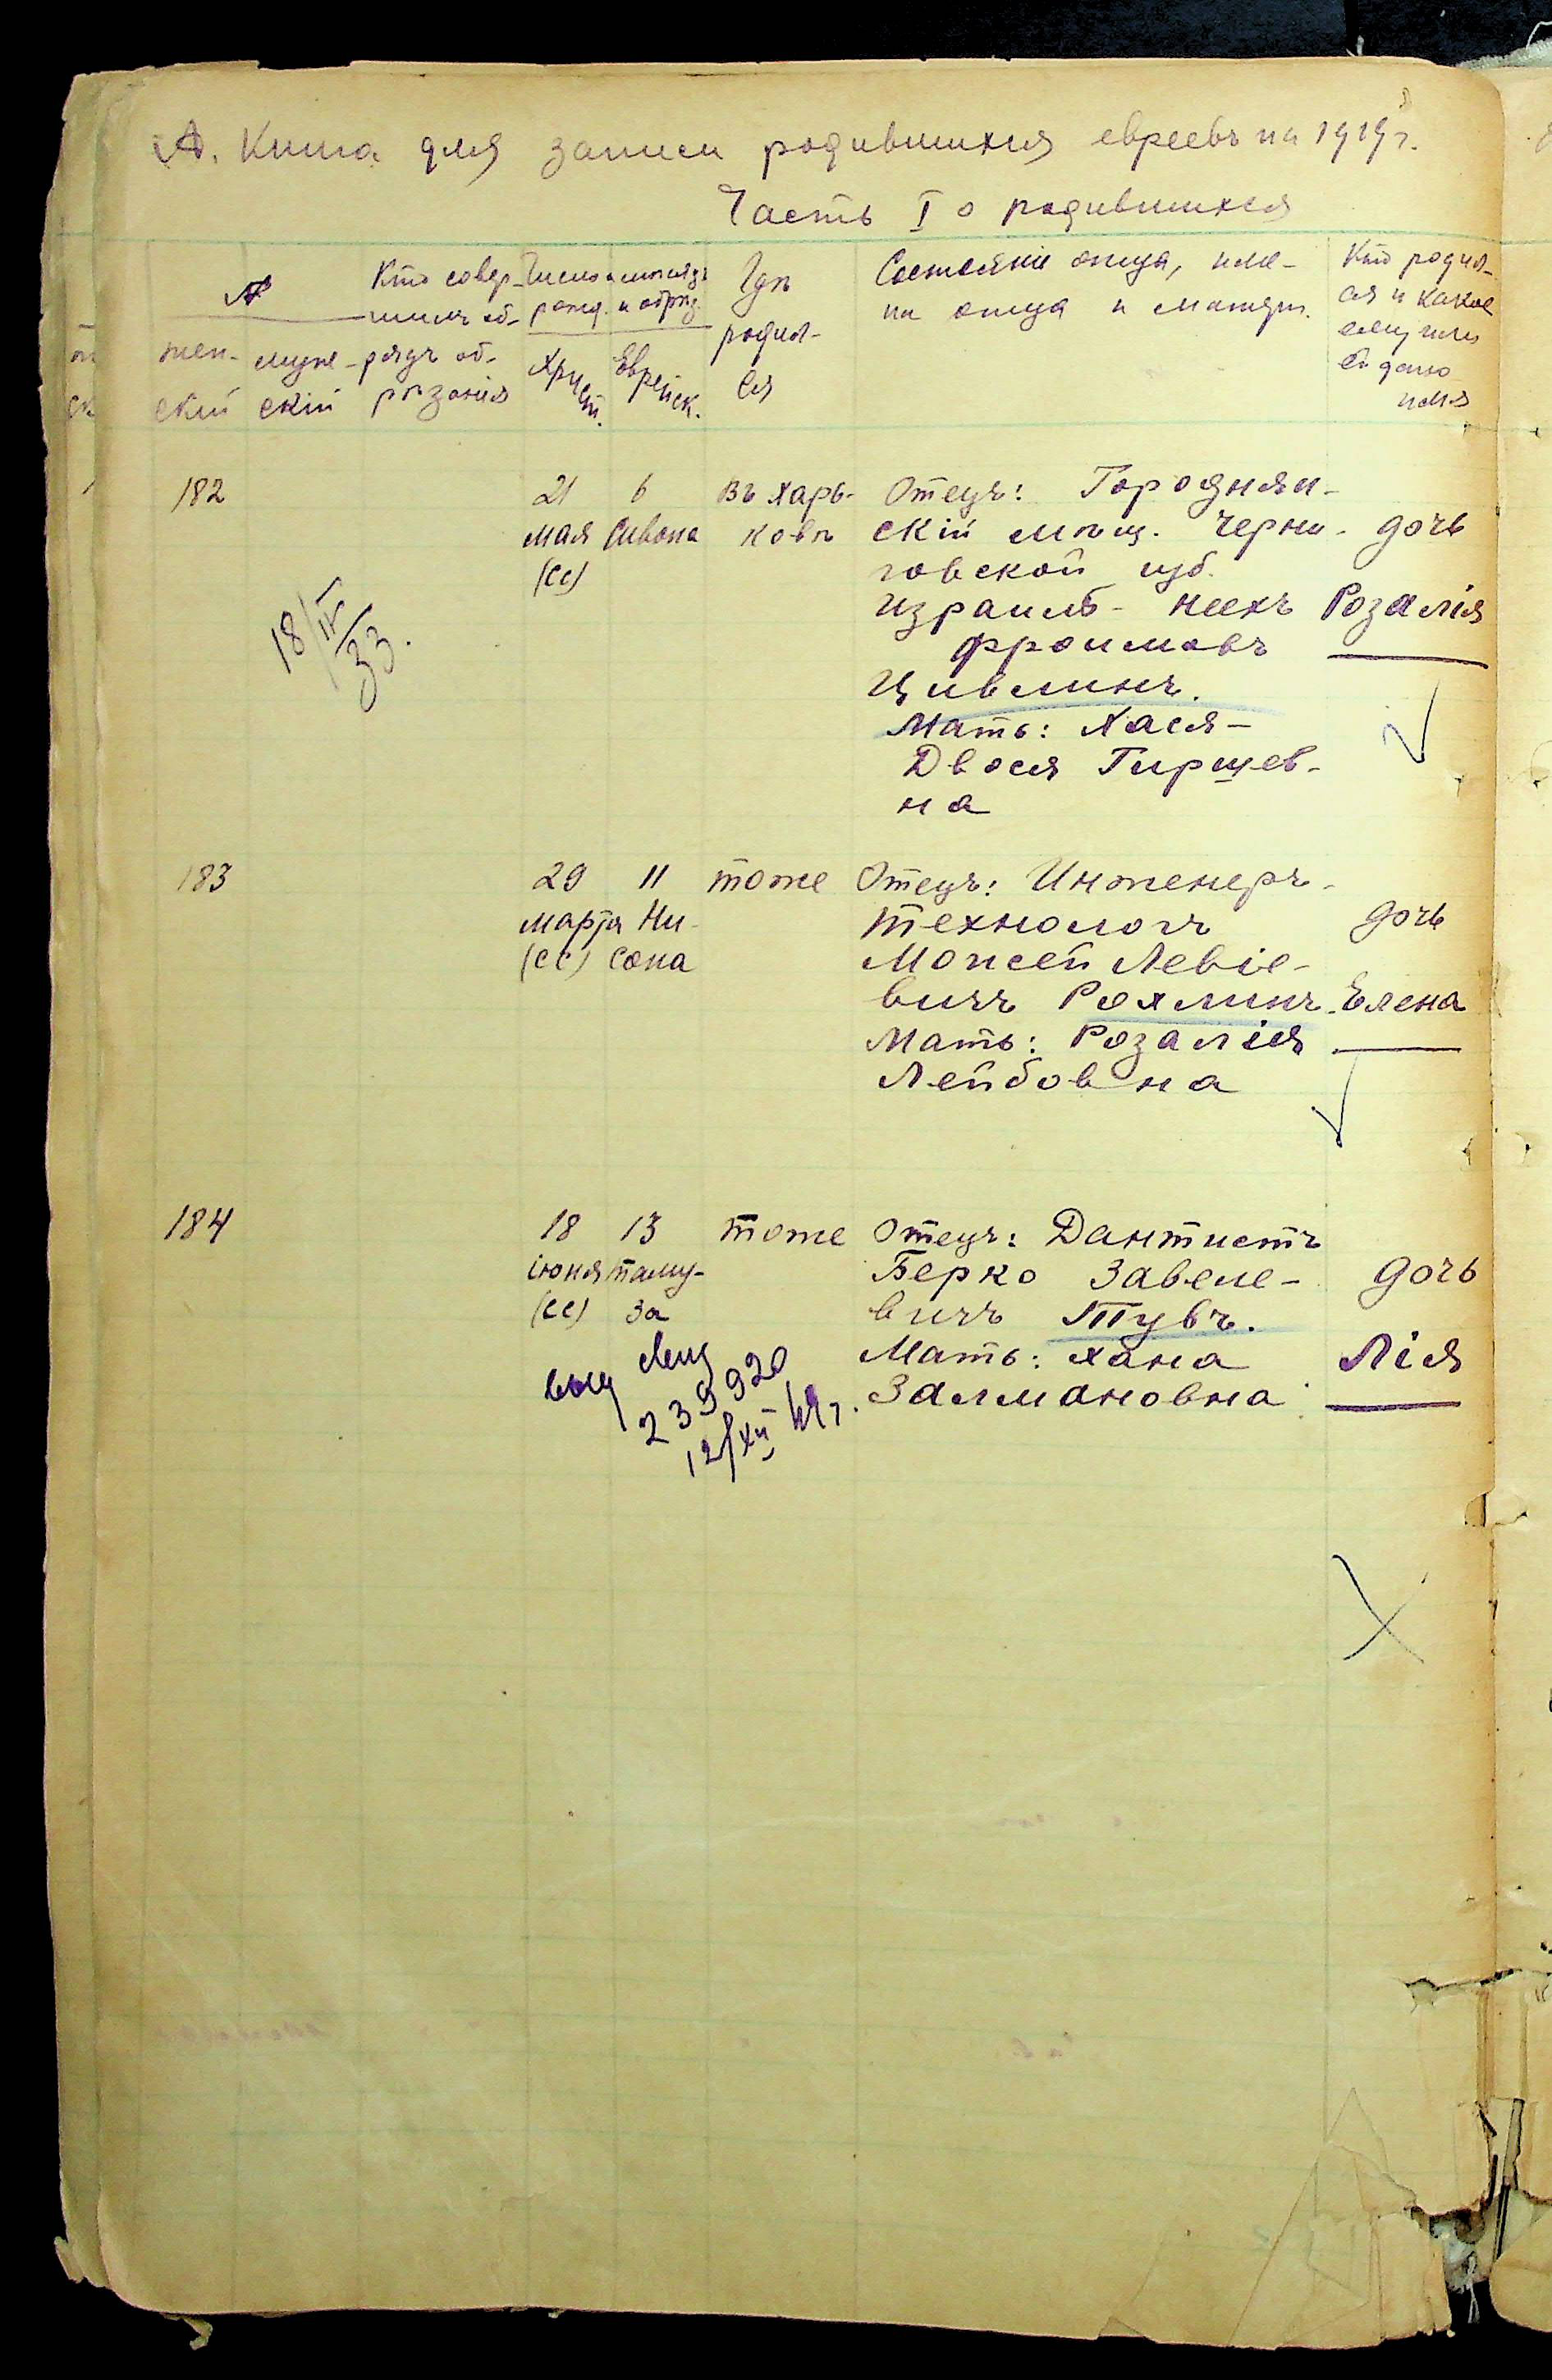 А. Книга для записи родившихся евреевъ на 1919 г.
Часть I о родившихся
№
жен-
скій
муже-
скій
Кто совер-
шилъ об-
рядъ об-
рѣзанія
Число и мѣсяцъ
рожд. и обрѣз.
Христ.
Еврейск.
Гдѣ
родил-
ся
Состояніе отца, име-
на отца и матери.
Кто родил-
ся и какое
ему или
ей дано
имя
182
21
мая
(сс)
6
Сивона
Въ Харь-
ковѣ
Отецъ: Городнян-
скій мѣщ. Черни-
говской губ.
Израиль-
Фроимовъ
Цивлинъ.
Мать: Хася-
Двося Гиршев-
на
дочь
Розалія
18/IV
33.
183
29
марта
(сс)
11
Ни-
сона
тоже
Отецъ: Инженеръ-
технологъ
Моисей Левіе-
вичъ Рохлинъ.
Мать: Розалія
Лейбовна
дочь
Елена
184
18
іюня
(сс)
13
таму-
за
тоже
Отецъ: Дантистъ
Берко Завеле-
вичъ Тувъ.
Мать: Хана
Залмановна
дочь
Лія
239920
12/XII г.